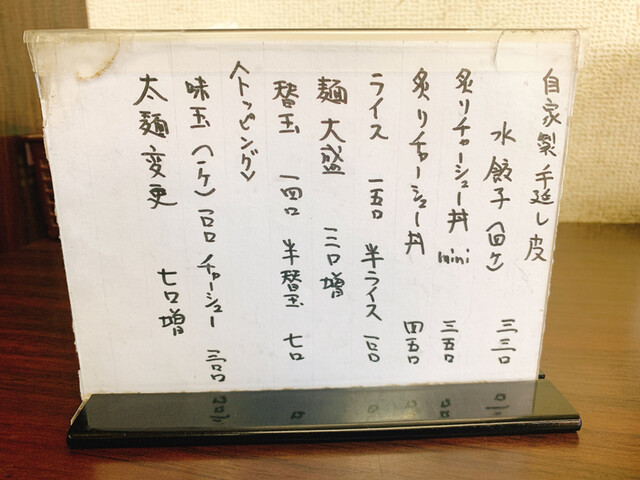 自家製手延し皮
水餃子(四ケ) 三三口
炙りチャーシュー丼 mini 三五口
炙りチャーシュー丼 四五口
ライス 一五口 半ライス 一口口
麺大盛 一三口増
替玉 一四口 半替玉 七口
〈トッピング〉
味玉(一ケ) 一口口 チャーシュー 三口口
太麺変更 七口増